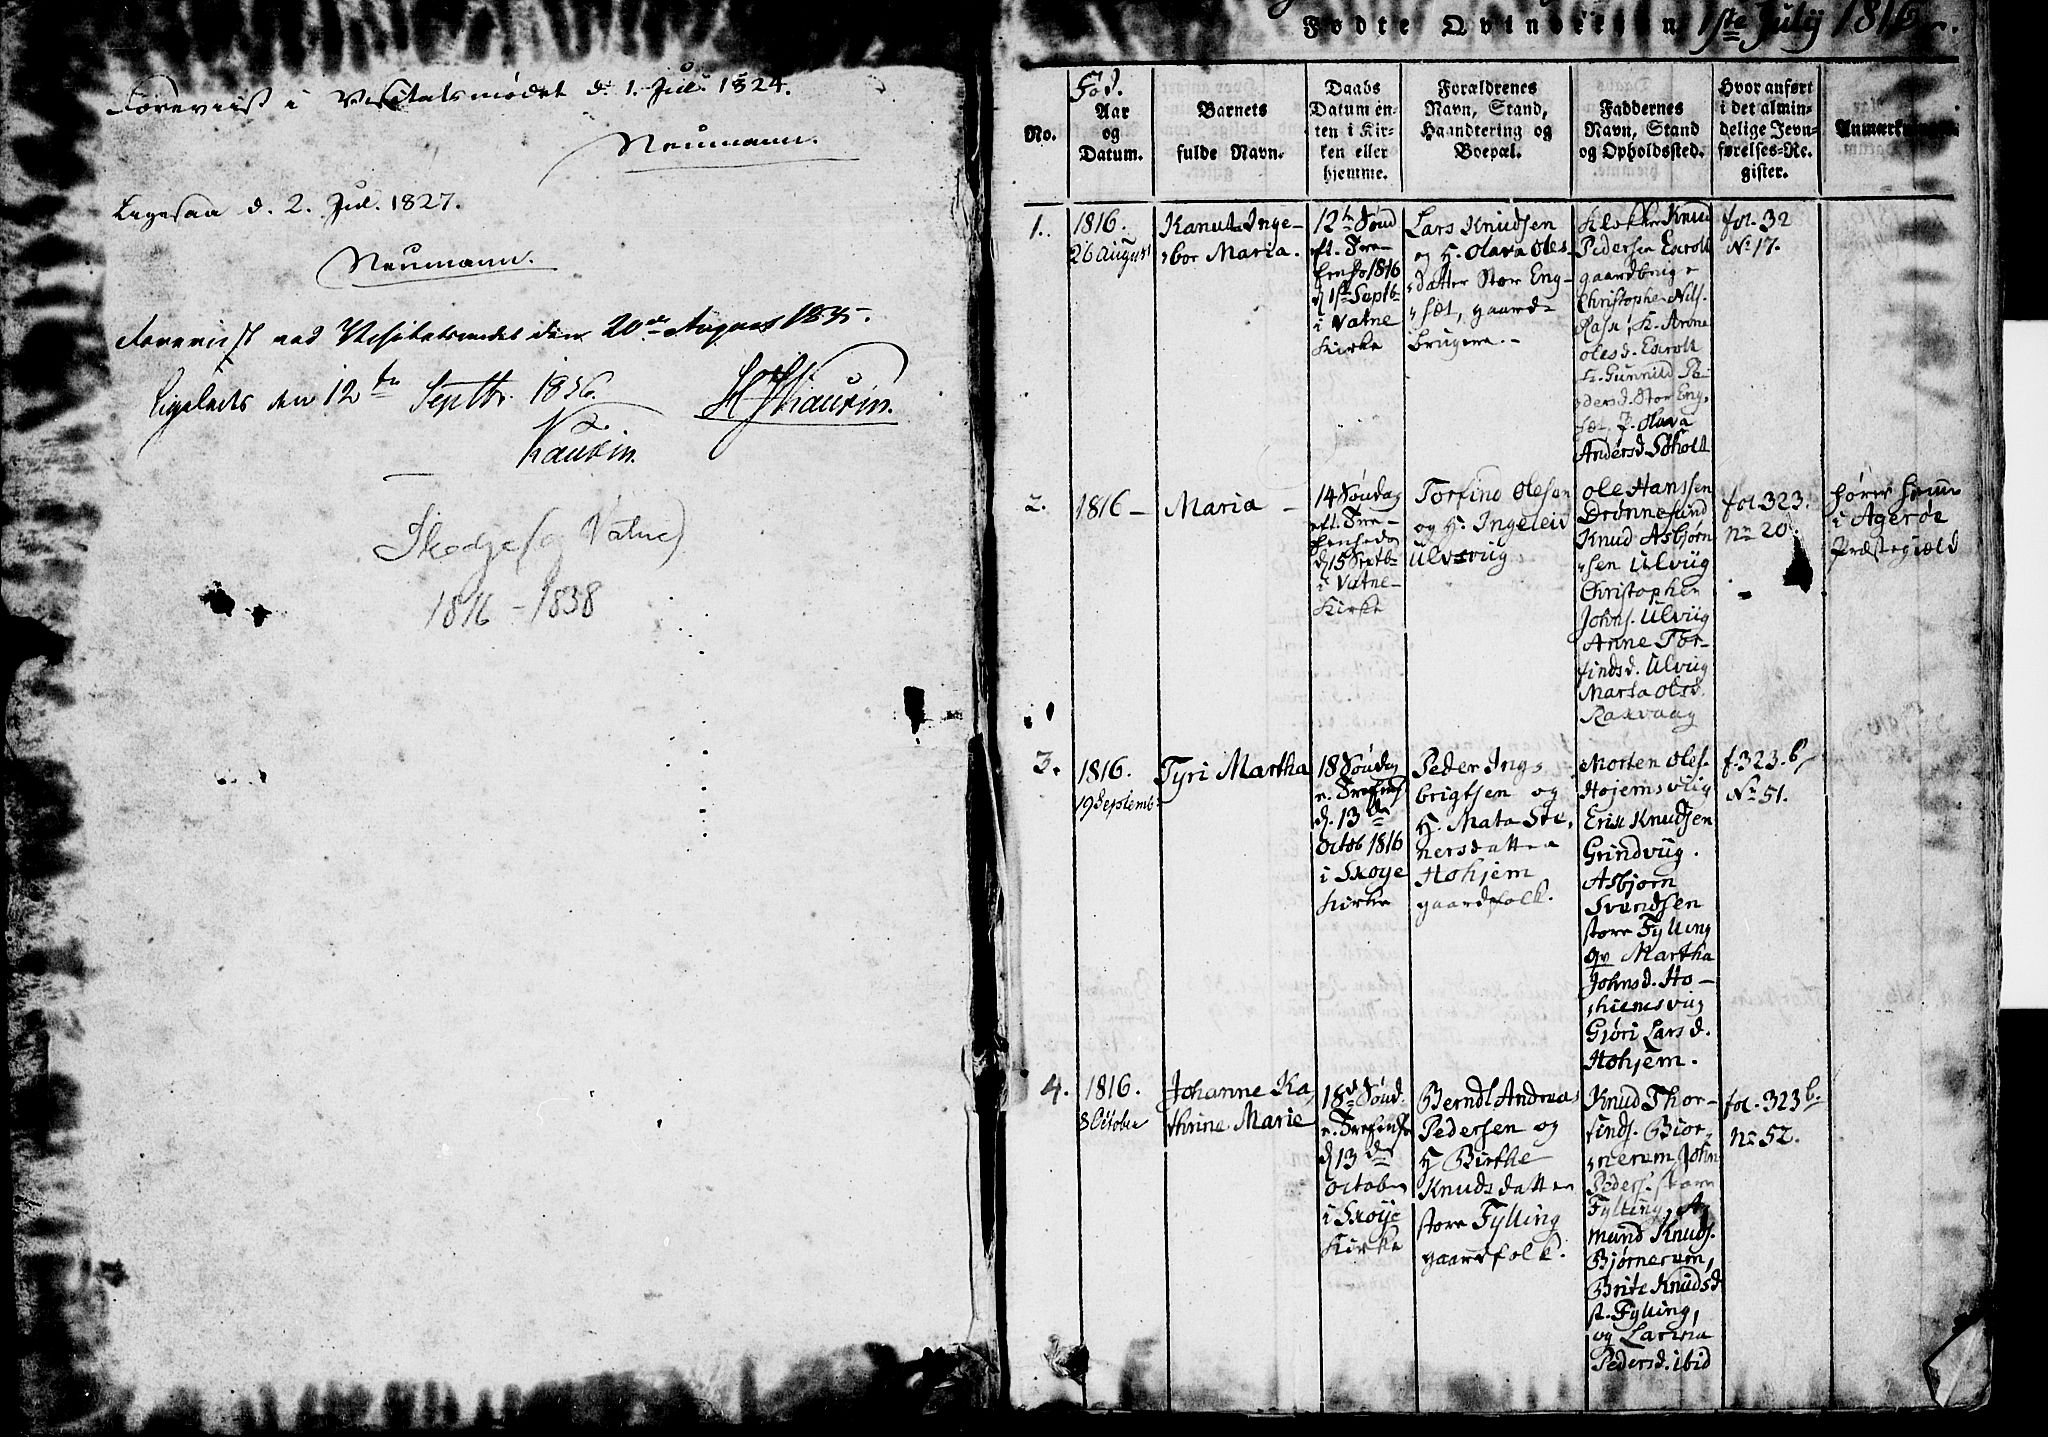 Foreviist i Visitatsmødet d. 1. Jul. 1824.
Neumann.
Ligesaa d. 2. Jul. 1827.
Neumann.
Foreviist ved Visitatsmødet den 20de August 1835.
Ligeledes den 12te Septbr. 1836.
Kaurin.
Kaurin.
Skodje (og Vatne)
1816 - 1838
Fødte Qvindekiøn 1ste July 1816
No.
Fød.
Aar
og
Datum.
Barnets
fulde Navn.
Daabs
Datum en-
ten i Kir-
ken eller
hjemme.
Forældrenes
Navn, Stand,
Haandtering og
Boepæl.
Faddernes
Navn, Stand
og Opholdssted.
Hvor anført
i det almin-
delige Jevn-
førelses-Re-
gister.
Anmærkninger.
1.
1816.
26 August
Kanut Inge-
bor Maria.
12te Sønd
eft. Tre-
d 1ste Septb
i Vatne
Kirke
Lars Knudsen
og H. Olava Oles
Datter Stor Eng-
sæt, gaard-
brugere.-
Klokker Knud
Pedersen Exrolt
gaardbruger
Christopher Nils.
K. Anne
Olesd. Exrolt
K. Gunnild Pe-
dersd. Stor Eng-
sæt, P. Olava
Andersd. Søholt
fol. 32
No 17.
2.
1816 -
Maria -
14 Søndag
eft. Tre-
d 15 Septb-
i Vatne-
Kirke
Torfind Olesen
og H. Ingeleid
Ulvsviig
Ole Hanssen
Drønnesund
Knud Asbjørn
sen Ulviig
Christopher
Johns. Ulviig
Anne Tor-
findsd. Ulviig
Marta Olsd.
Rakvaag
fol. 323.
No 20
hører hiem
i Agerøe
Præstegiæld
3.
1816.
19 Septemb.
Tyri Martha
18 Søndag
d. 13de
Octob 1816
i Skoye
Kirke
Peder Ing-
brigtsen og
H. Mata Ste-
nersdatter
Hohjem
gaardfolk.
Morten Oles.
Hojemsviig
Erik Knudsen
Grindviig.
Asbjørn
Svendsen
store Fylling
qv Martha
Johnsd. Ho-
hiemsviig
Gjøri Larsd.
Hohjem.
f. 323. b
No 51.
4.
1816.
8 October
Johanne Ka-
thrine Marie
18de Sønd.
d 13de
October
i Skoye
Kirke
Berndt Andreas
Pedersen og
H Birthe
Knudsdatter
store Fylling
gaardfolk.
Knud Thor-
finds. Biør-
nerem John
Peders. store
Fylling, Aa
mund Knuds.
Bjørnerem,
Brite Knudsd
st. Fylling,
og Lavina
Pedersd. ibid
fol. 323 b.
No 52.